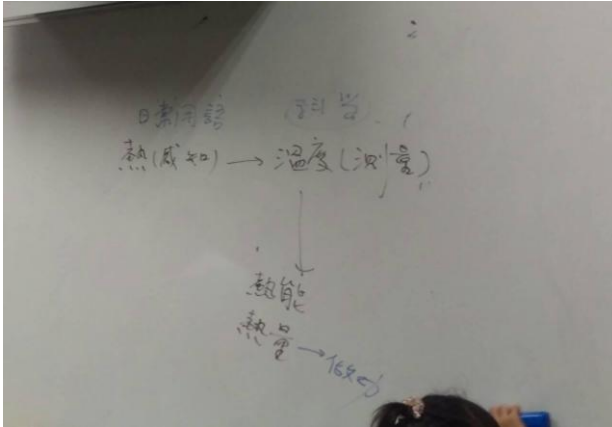 日常用語 科學
熱(感知) → 溫度(測量)
熱能
熱量 → 做功